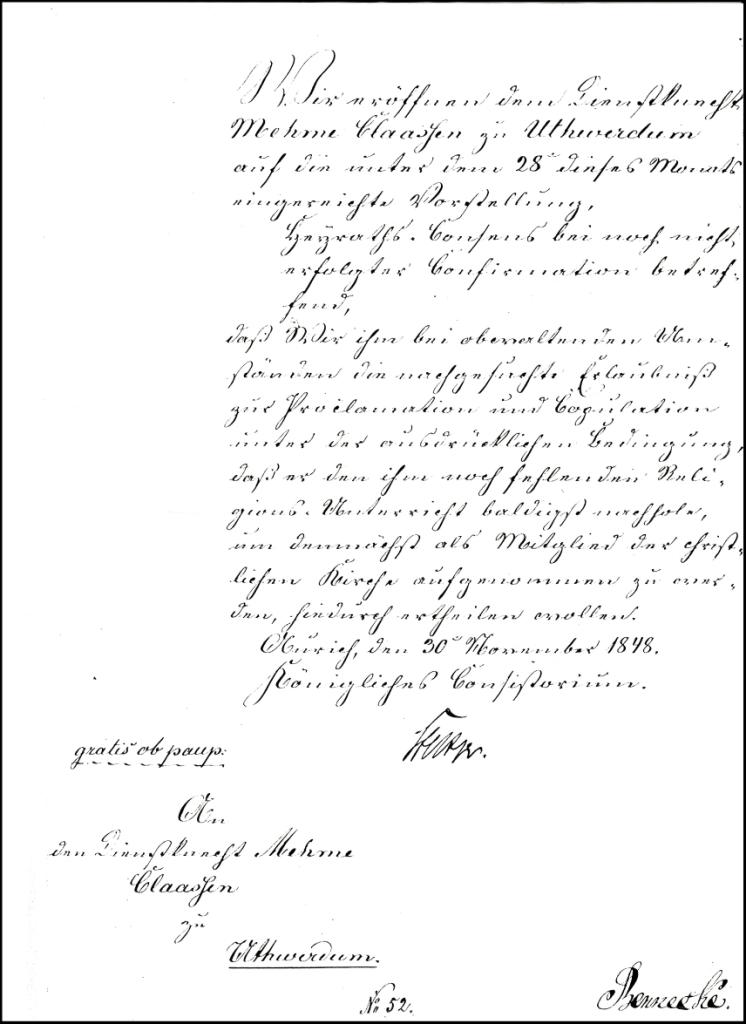 Wir eröffnen dem Dienstknecht
Mehme Claassen zu Uthwerdum
auf die unter dem 28t dieses Monats
eingereichte Vorstellung,
Heyraths-Consens bei noch nicht
erfolgter Confirmation betref-
fend,
daß Wir ihm bei obwaltenden Um-
ständen die nachgesuchte Erlaubniß
zur Proclamation und Copulation
unter der ausdrücklichen Bedingung,
daß er den ihm noch fehlenden Reli-
gions-Unterricht baldigst nachhole,
um demnächst als Mitglied der christ-
lichen Kirche aufgenommen zu wer-
den, hiedurch ertheilen wollen.
Aurich, den 30t November 1848.
Königliches Consistorium.
gratis ob paup:
An
den Dienstknecht Mehme
Claassen
zu
Uthwerdum.
No 52.
Bennecke.